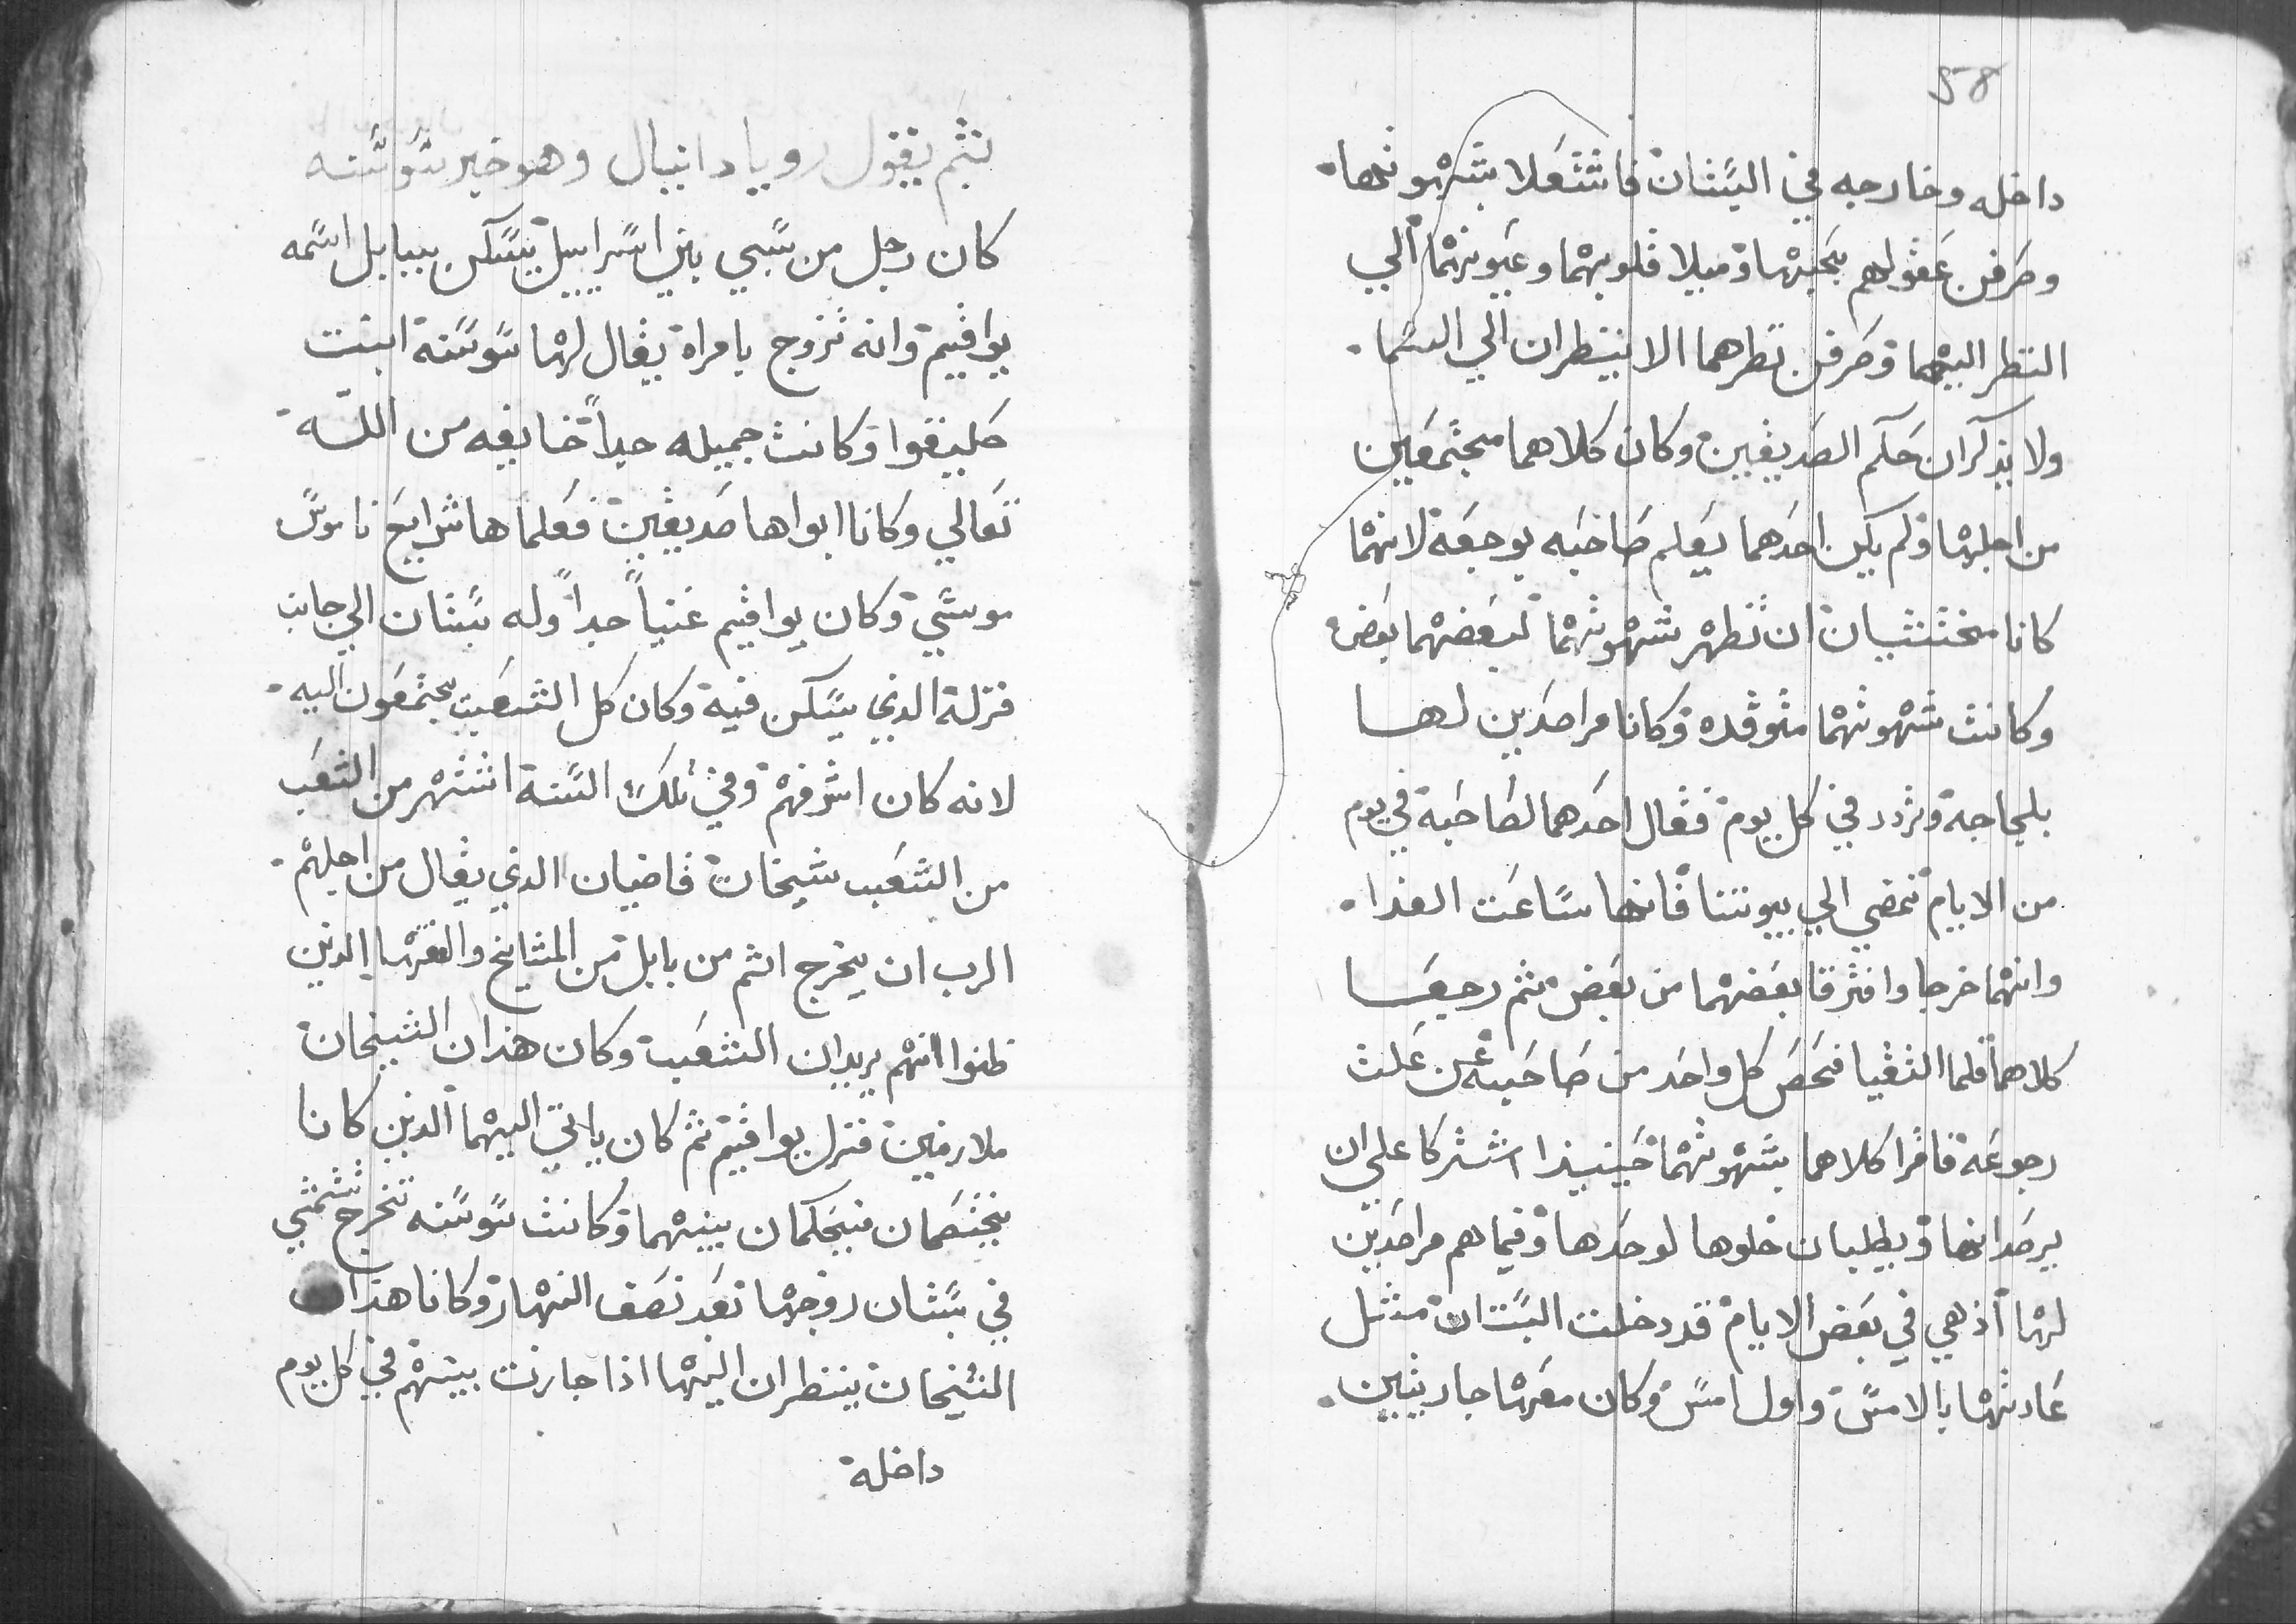 نثم يقول رويا دانيال وهو خبر سوسنه
كان رجل من سبي بني اسراييل يسكن ببابل اسمه
يواقيم وانه تزوج بامراة يقال لها سوسنة ابنت
حلييقوا وكانت جميله جداً خايفه من اللـه
تعالي وكانا ابواها صديقين فعلماها شرايع ناموس
موسي وكان يواقيم غنياً جداً وله بستان الي جانب
منزلة الذي يسكن فية وكان كل الشعب يجتمعون اليه
لانه كان اشرفهم وفي تلك السنة اشتهر من الشعب
من الشعب شيخان قاضيان الذي يقال من اجلهم
الرب ان يخرج اثم من بابل من المشايخ والفقها الذين
ظنوا انهم يريدان الشعب وكان هذان الشيخان
ملازمين منزل يواقيم ثم كان ياتي اليهما الذين كانا
يختصمان فيحكمان بينهما وكانت سوسنه تخرج تتمشي
في بستان زوجها بعد نصف النهار وكانا هذان
الشيخان ينظران اليها اذا جازت بينهم في كل يوم
داخلة
58
داخله وخارجه في البستان فاشتعلا بشهوتها
وصرفن عقولهم بحبها وميلا قلوبهما وعيونهما الي
النظر اليهما وصرفن نظرهما الا ينظران الي السما
ولا يذكران حكم الصديقين وكان كلاهما مجتمعين
من اجلها ولم يكن احدهما يعلم صاحبه بوجعة لانهما
كانا مختشيان ان تظهر شهوتهما لبعضهما بعض
وكانت شهوتهما متوقده وكانا مراصدين لهـا
بلجاجة وتردد في كل يوم فقال احدهما لصاحبة في يوم
من الايام نمضي الي بيوتنا فانها ساعت الغذا
وانهما خرجا وافترقا بعضهما من بعض ثم رجعـا
كلاهما فلما التقيا فحص كل واحد من صاحبه عن علت
رجوعة فاقرا كلاهما بشهوتهما حينيذا اشتركا علي ان
يرصدانها ويطلبان خلوها لوحدها وفيما هم مراصدين
لها اذ هي في بعض الايام قد دخلت البستان مثـل
عادتها بالامس واول امس وكان معها جاريتين